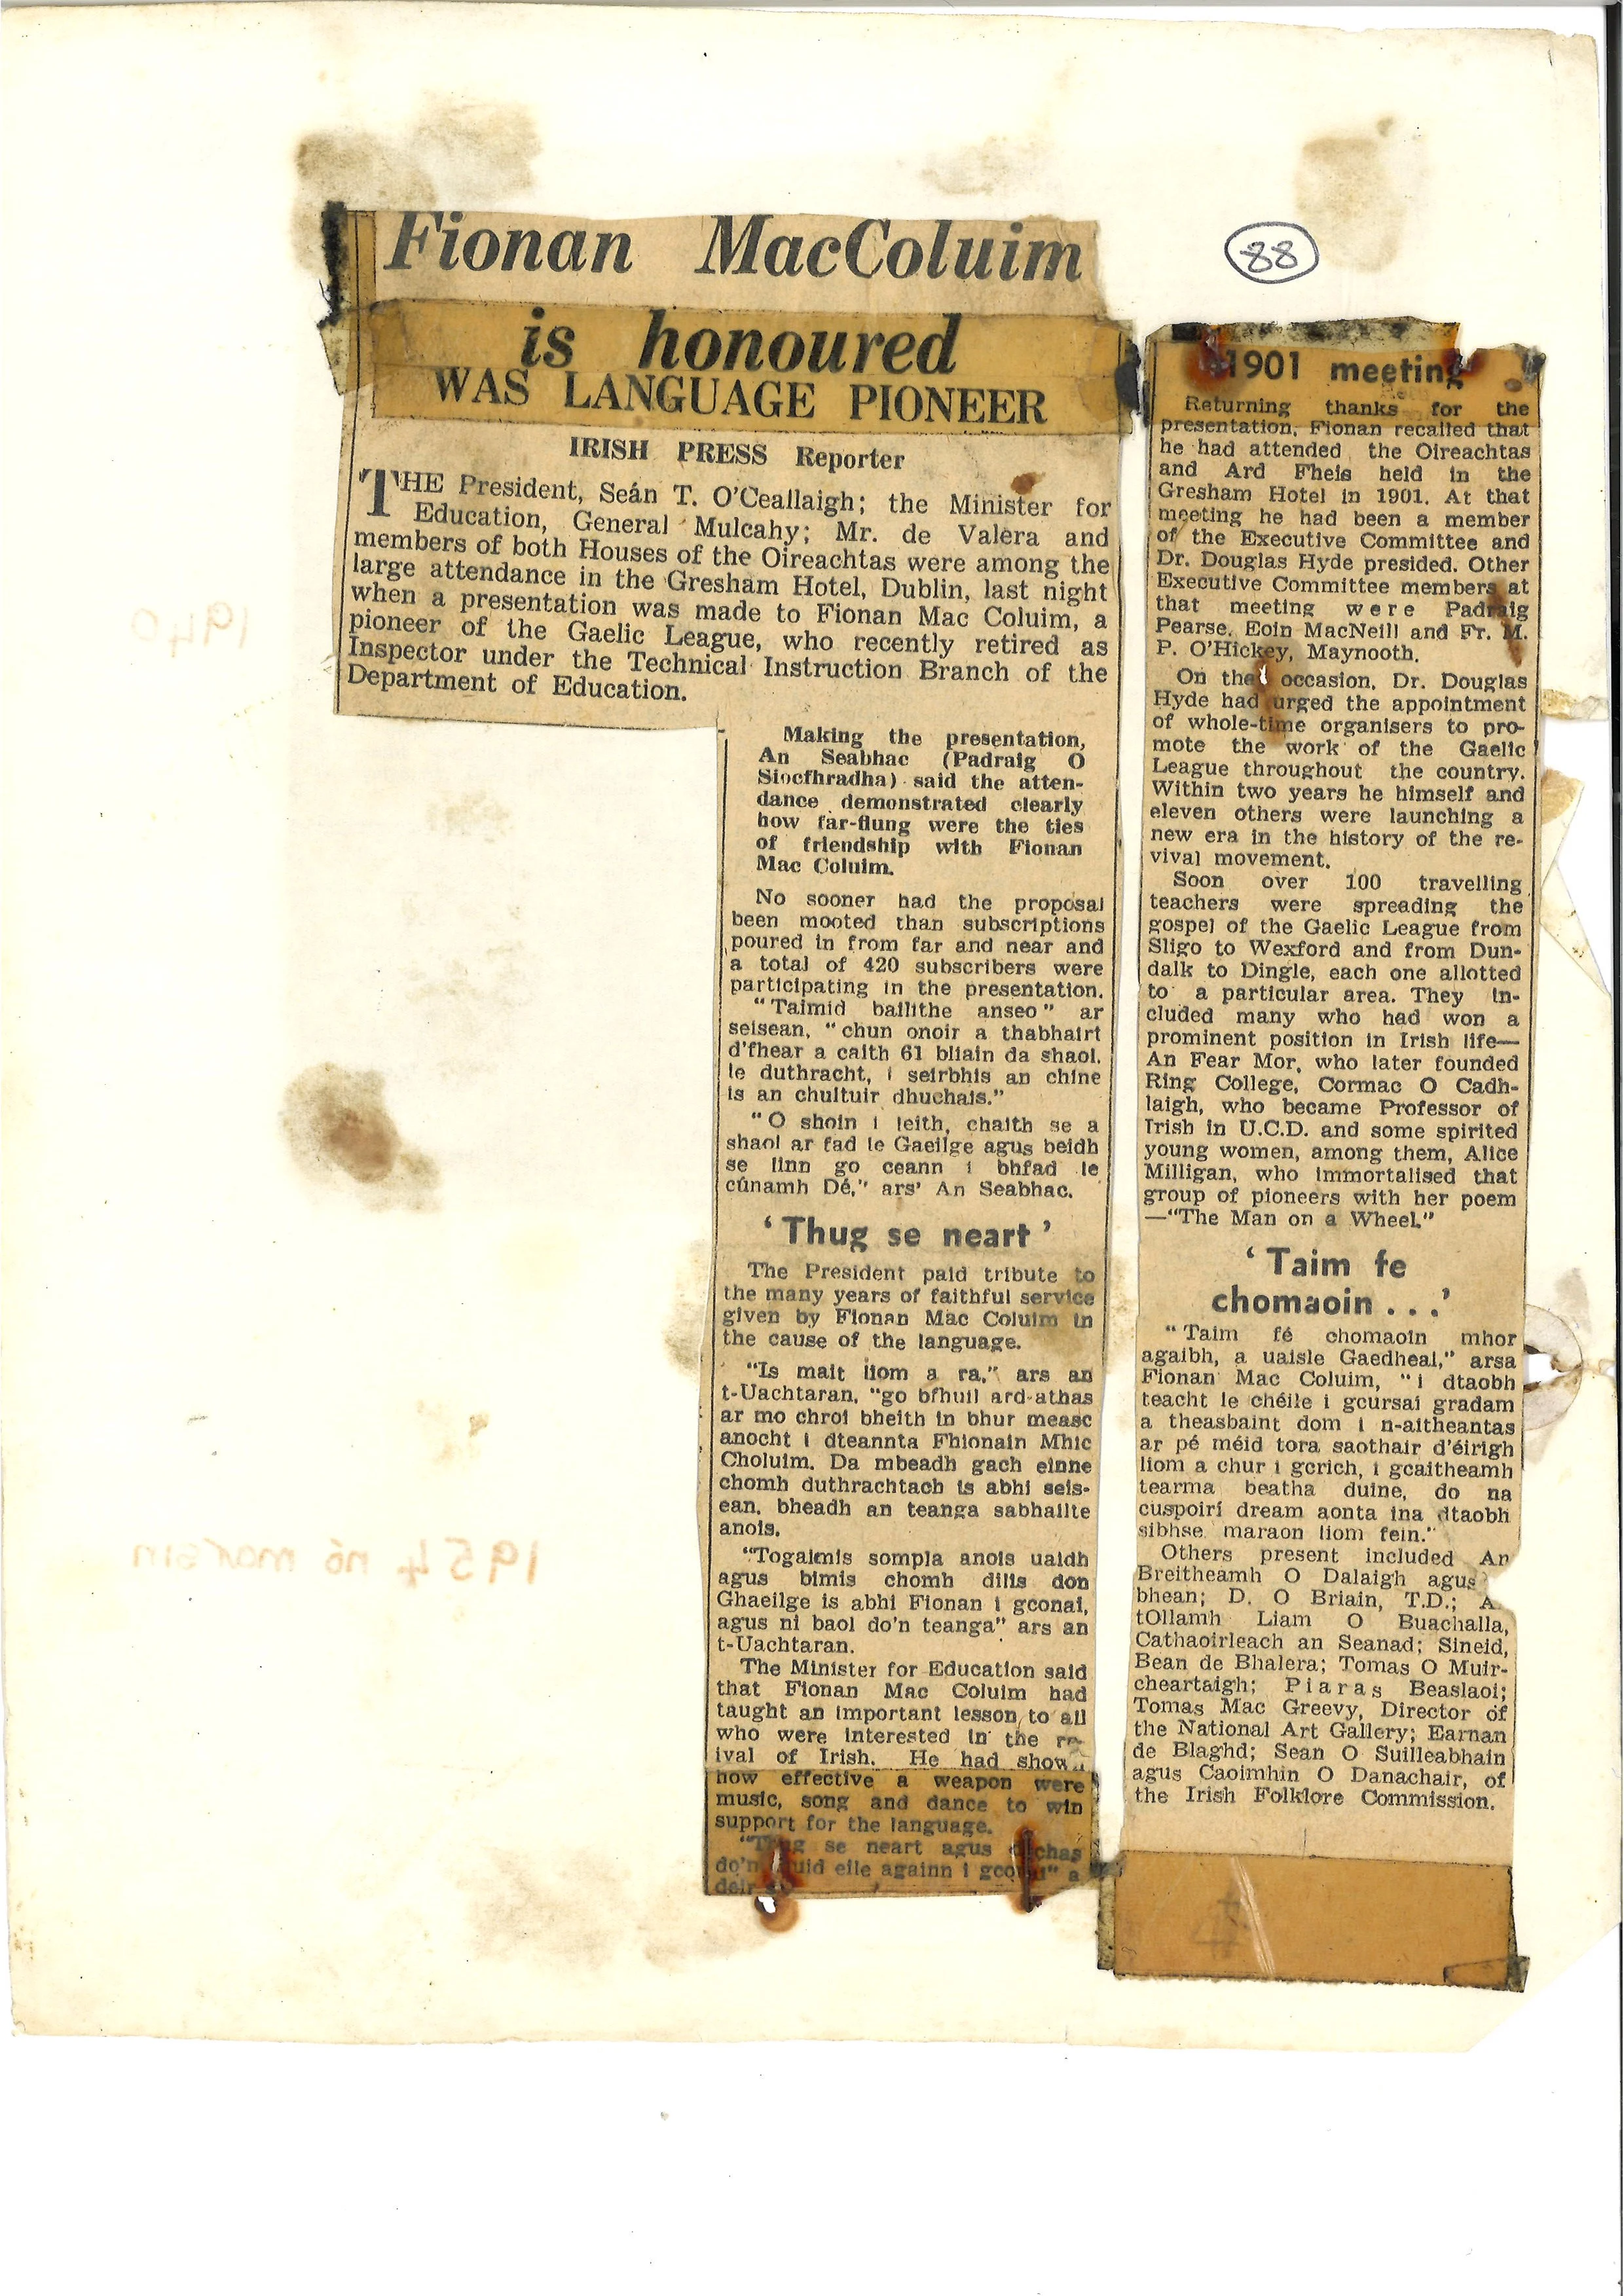 88
Fionan MacColuim
is honoured
WAS LANGUAGE PIONEER
IRISH PRESS Reporter
THE President, Seán T. O'Ceallaigh; the Minister for
Education, General Mulcahy; Mr. de Valera and
members of both Houses of the Oireachtas were among the
large attendance in the Gresham Hotel, Dublin, last night
when a presentation was made to Fionan Mac Coluim, a
pioneer of the Gaelic League, who recently retired as
Inspector under the Technical Instruction Branch of the
Department of Education.
Making the presentation,
An Seabhac (Padraig O
Siocfhradha) said the atten-
dance demonstrated clearly
how far-flung were the ties
of friendship with Fionan
Mac Coluim.
No sooner had the proposal
been mooted than subscriptions
poured in from far and near and
a total of 420 subscribers were
participating in the presentation.
"Taimid bailithe anseo" ar
seisean, "chun onoir a thabhairt
d'fhear a caith 61 bliain da shaol,
le duthracht, i seirbhis an chine
is an chultuir dhuchais."
"O shoin i leith, chaith se a
shaol ar fad le Gaeilge agus beidh
se linn go ceann i bhfad le
cúnamh Dé," ars' An Seabhac.
'Thug se neart'
The President paid tribute to
the many years of faithful service
given by Fionan Mac Coluim in
the cause of the language.
"Is mait liom a ra," ars an
t-Uachtaran, "go bfhuil ard-athas
ar mo chroi bheith in bhur measc
anocht i dteannta Fhionain Mhic
Choluim. Da mbeadh gach einne
chomh duthrachtach is abhi seis-
ean, bheadh an teanga sabhailte
anois.
"Togaimis sompla anois uaidh
agus bimis chomh dilis don
Ghaeilge is abhi Fionan i gconai,
agus ni baol do'n teanga" ars an
t-Uachtaran.
The Minister for Education said
that Fionan Mac Coluim had
taught an important lesson to all
who were interested in the re-
ival of Irish. He had show
how effective a weapon were
music, song and dance to win
support for the language.
"Thug se neart agus
do'n chuid eile againn i gconai" a
deir
1901 meeting
Returning thanks for the
presentation, Fionan recalled that
he had attended the Oireachtas
and Ard Fheis held in the
Gresham Hotel in 1901. At that
meeting he had been a member
of the Executive Committee and
Dr. Douglas Hyde presided. Other
Executive Committee members at
that meeting were Padraig
Pearse, Eoin MacNeill and Fr. M.
P. O'Hickey, Maynooth.
On that occasion, Dr. Douglas
Hyde had urged the appointment
of whole-time organisers to pro-
mote the work of the Gaelic
League throughout the country.
Within two years he himself and
eleven others were launching a
new era in the history of the re-
vival movement.
Soon over 100 travelling
teachers were spreading the
gospel of the Gaelic League from
Sligo to Wexford and from Dun-
dalk to Dingle, each one allotted
to a particular area. They in-
cluded many who had won a
prominent position in Irish life—
An Fear Mor, who later founded
Ring College, Cormac O Cadh-
laigh, who became Professor of
Irish in U.C.D. and some spirited
young women, among them, Alice
Milligan, who immortalised that
group of pioneers with her poem
—"The Man on a Wheel."
'Taim fe
chomaoin . . .'
"Taim fé chomaoin mhor
agaibh, a uaisle Gaedheal," arsa
Fionan Mac Coluim, "i dtaobh
teacht le chéile i gcursai gradam
a theasbaint dom i n-aitheantas
ar pé méid tora saothair d'éirigh
liom a chur i gcrich, i gcaitheamh
tearma beatha duine, do na
cuspoiri dream aonta ina dtaobh
sibhse maraon liom fein."
Others present included An
Breitheamh O Dalaigh agus
bhean; D. O Briain, T.D.; A
tOllamh Liam O Buachalla,
Cathaoirleach an Seanad; Sineid,
Bean de Bhalera; Tomas O Muir-
cheartaigh; Piaras Beaslaoi;
Tomas Mac Greevy, Director of
the National Art Gallery; Earnan
de Blaghd; Sean O Suilleabhain
agus Caoimhin O Danachair, of
the Irish Folklore Commission.
1940
1954 nó marsin